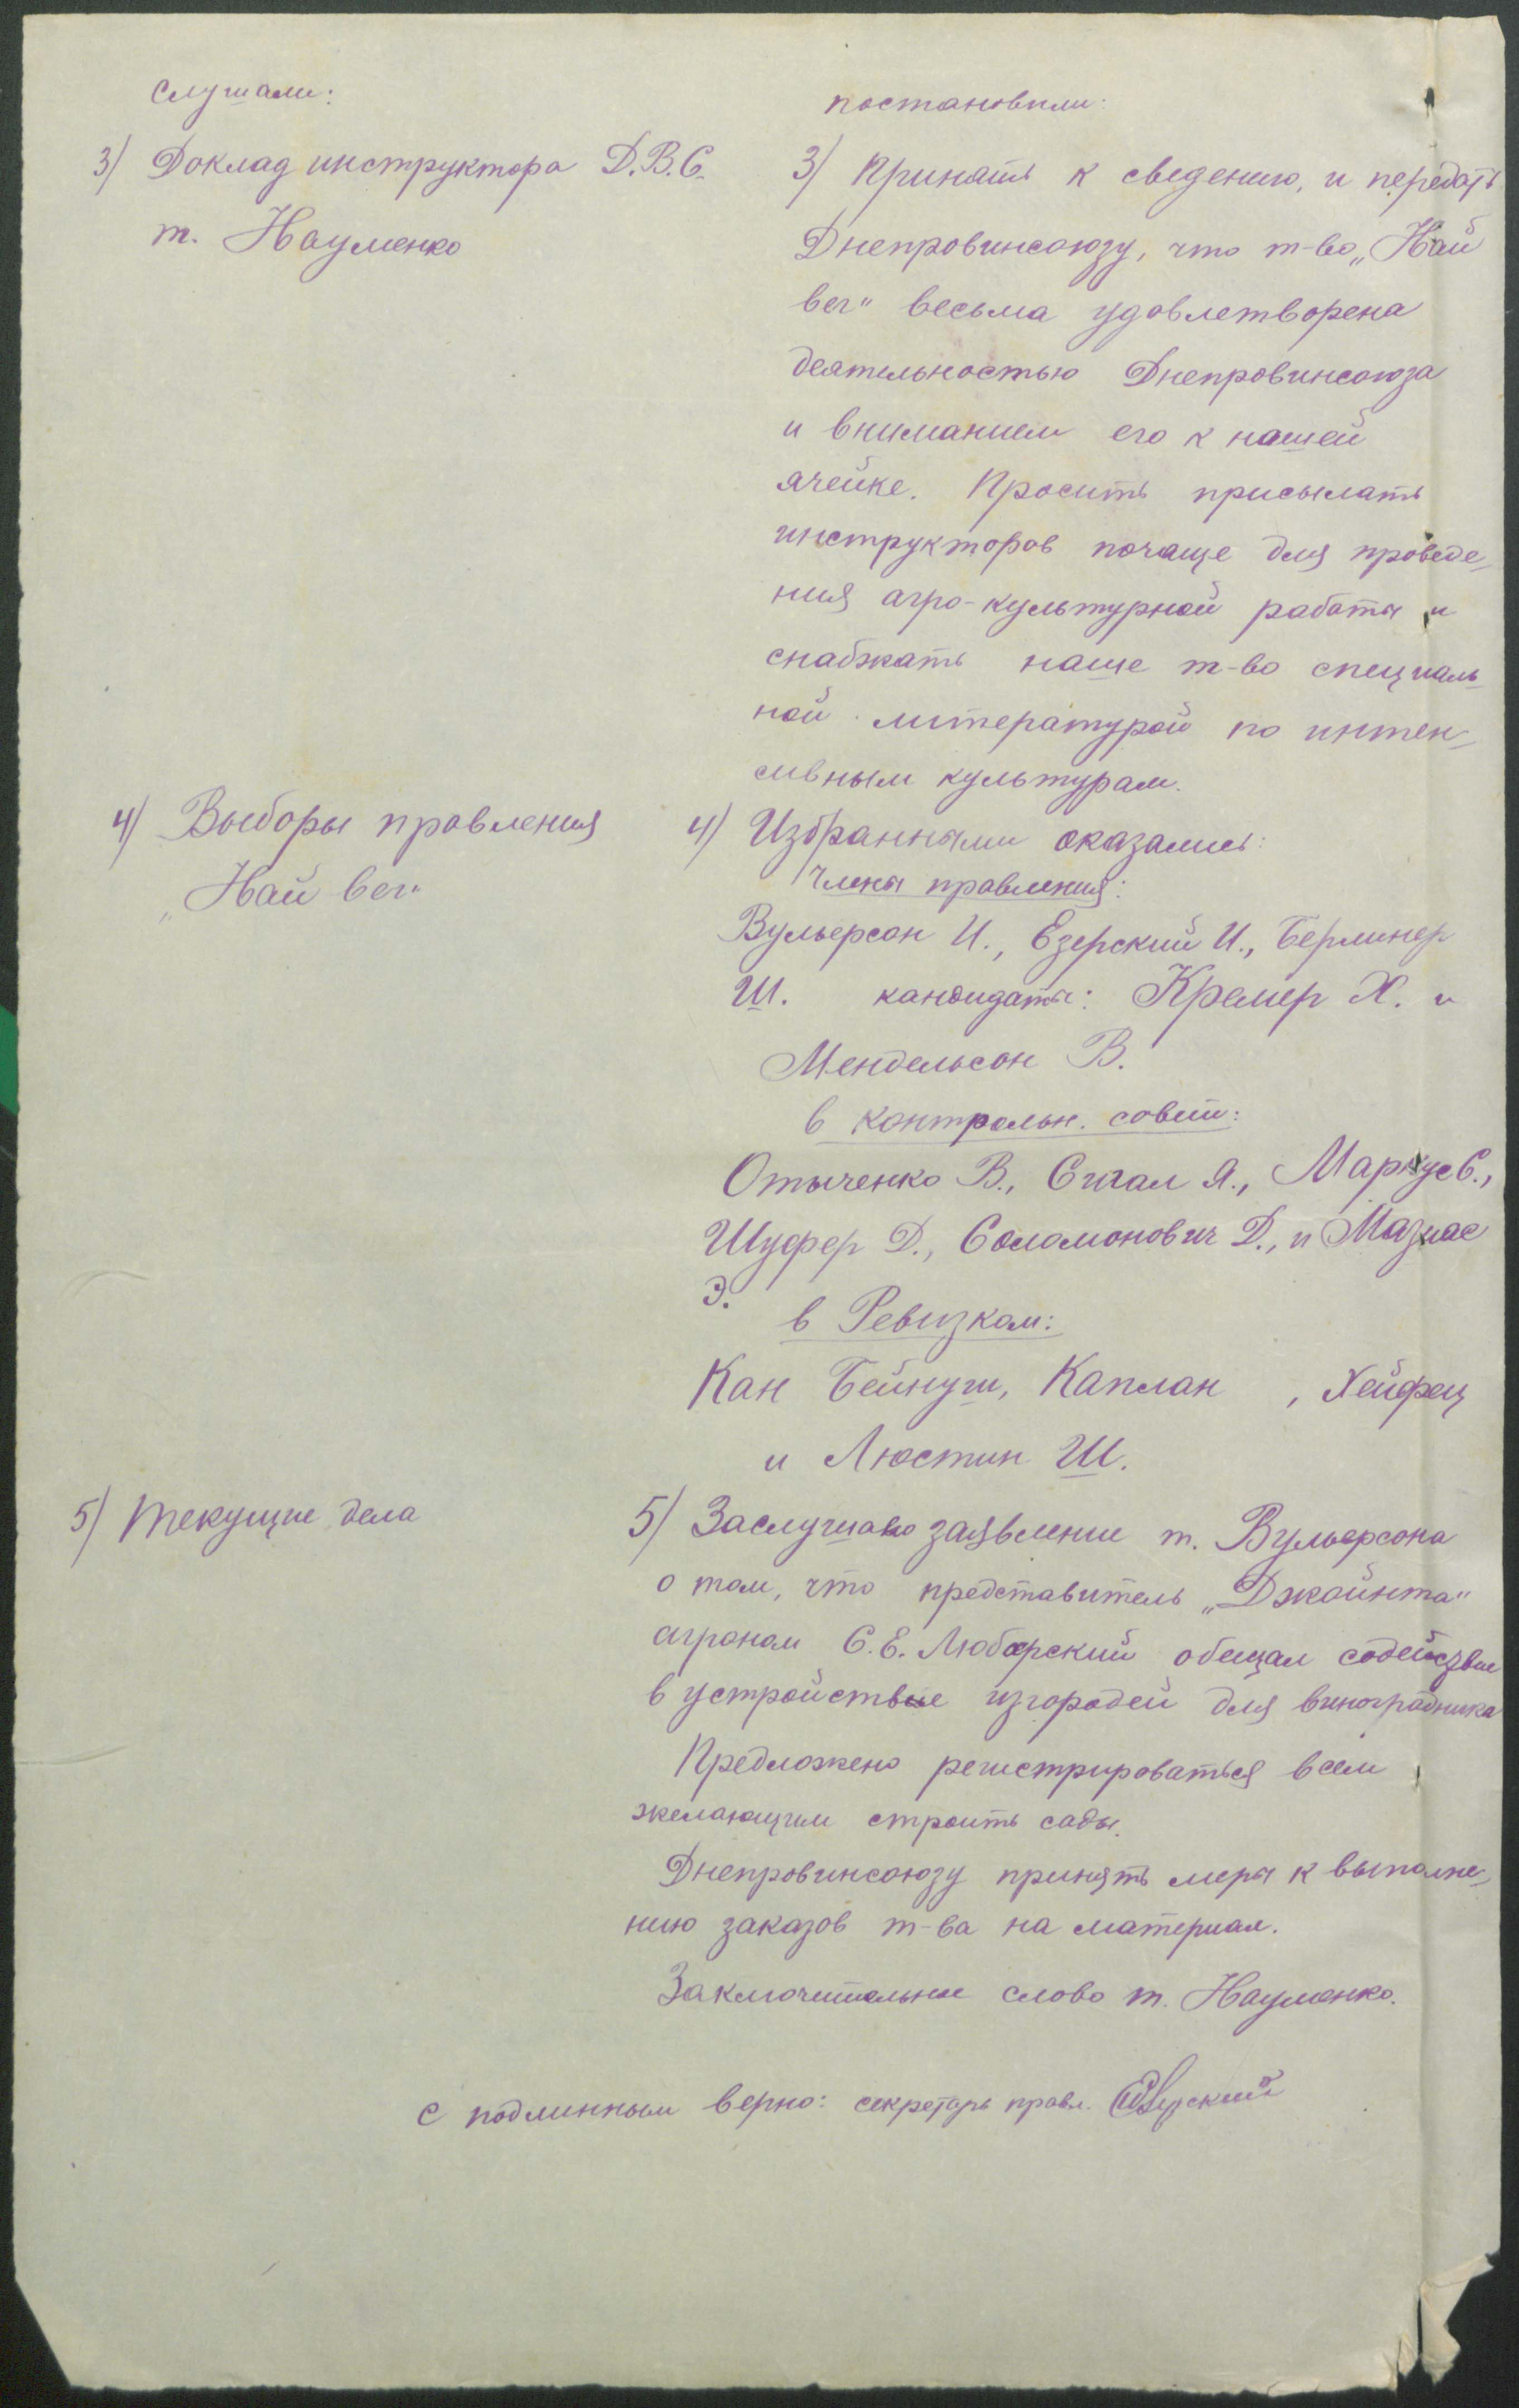 слушали:
постановили:
3) Доклад инструктора Д.В.С.
т. Науменко
3) Принять к сведению, и передать
Днепровинсоюзу, что т-во „Най
вег" весьма удовлетворена
деятельностью Днепровинсоюза
и вниманием его к нашей
ячейке. Просить присылать
инструкторов почаще для проведе-
ния агро-культурной работы и
снабжать наше т-во специаль-
ной литературой по интен-
сивным культурам.
4) Выборы правления
„Най вег"
4) Избранными оказались:
Члены правления:
Вульерсон И., Езерский И., Берлинер
Ш. кандидаты: Кремер Х. и
Мендельсон В.
в контрольн. совет:
Отыченко В., Сигал Я., Маркус С.,
Шуфер Д., Соломонович Д., и Мазиас
Э.
в Ревизком:
Кан Бейнуш, Каплан , Хейфец
и Люстин Ш.
5) Текущие дела
5) Заслушано заявление т. Вульерсона
о том, что представитель „Джойнта"
агроном С.Е. Любарский обещал содействие
в устройстве изгородей для виноградника
Предложено регистрироваться всем
желающим строить сады.
Днепровинсоюзу принять меры к выполне-
нию заказов т-ва на материал.
Заключительное слово т. Науменко.
С подлинным верно: секретарь правл.